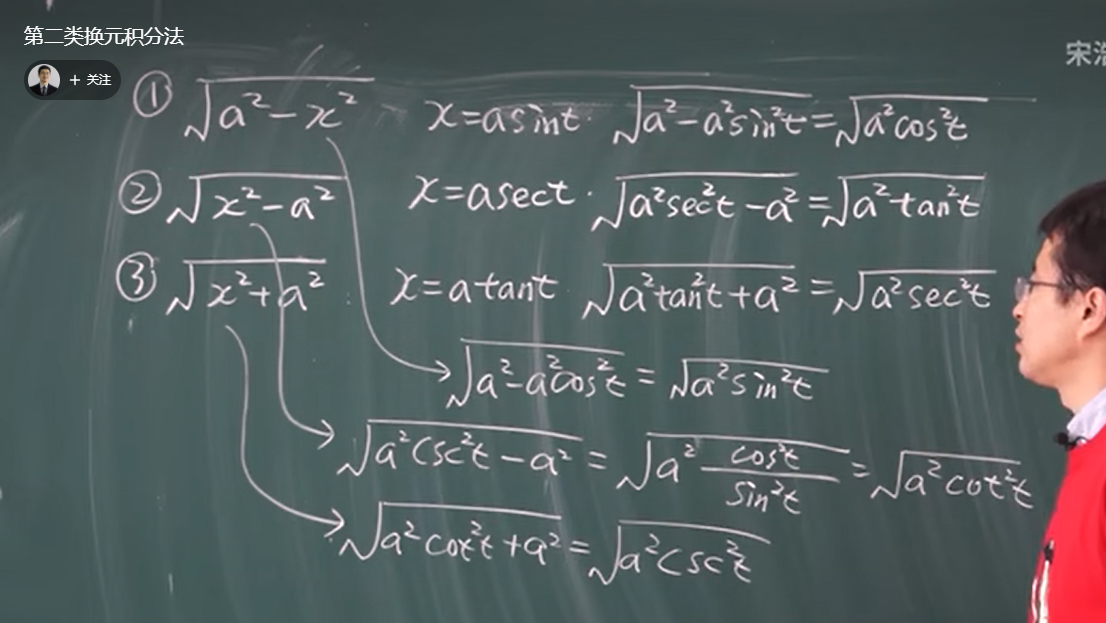 第二类换元积分法
+ 关注
宋浩
① √(a²-x²) x=asint. √(a²-a²sin²t)=√(a²cos²t)
② √(x²-a²) x=asect. √(a²sec²t-a²)=√(a²tan²t)
③ √(x²+a²) x=atant √(a²tan²t+a²)=√(a²sec²t)
√(a²-a²cos²t)=√(a²sin²t)
√(a²csc²t-a²)=√(a² cos²t/sin²t)=√(a²cot²t)
√(a²cot²t+a²)=√(a²csc²t)